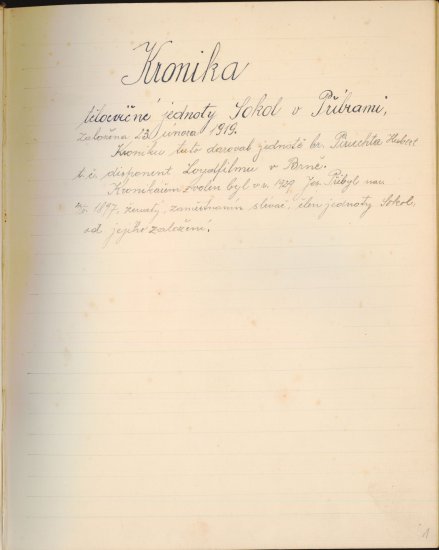 Kronika
tělocvičné jednoty Sokol v Příbrami,
založena 23. února 1919.
Kroniku tuto daroval jednotě br. Hubert
t. č. disponent Loydfilmu v Brně.
Kronikářem zvolen byl v r. 1929 Jos. Přibyl nar.
1897, ženatý, zaměstnáním slévač, člen jednoty Sokol,
od jejího založení.
1